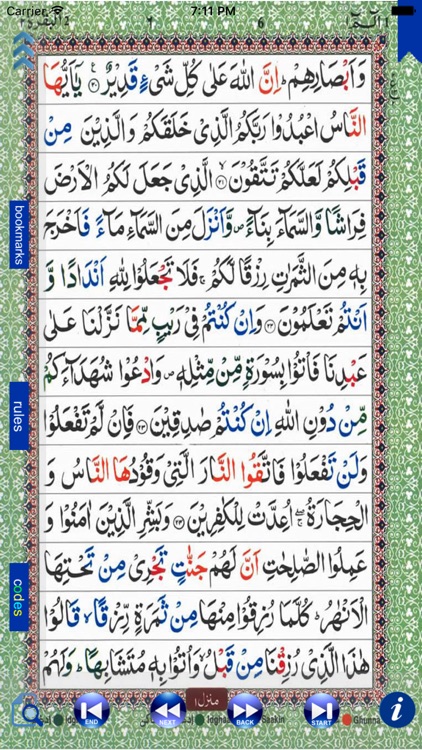 Carrier 7:11 PM
6
وَاَبْصَارِهِمْ ؕ اِنَّ اللّٰهَ عَلٰى كُلِّ شَیْءٍ قَدِیْرٌ ﴿۲۰﴾ یٰۤاَیُّهَا
النَّاسُ اعْبُدُوْا رَبَّكُمُ الَّذِیْ خَلَقَكُمْ وَالَّذِیْنَ مِنْ
قَبْلِكُمْ لَعَلَّكُمْ تَتَّقُوْنَ ﴿۲۱﴾ الَّذِیْ جَعَلَ لَكُمُ الْاَرْضَ
فِرَاشًا وَّالسَّمَآءَ بِنَآءً ۪ وَّاَنْزَلَ مِنَ السَّمَآءِ مَآءً فَاَخْرَجَ
بِهٖ مِنَ الثَّمَرٰتِ رِزْقًا لَّكُمْ ۚ فَلَا تَجْعَلُوْا لِلّٰهِ اَنْدَادًا وَّ
اَنْتُمْ تَعْلَمُوْنَ ﴿۲۲﴾ وَاِنْ كُنْتُمْ فِیْ رَیْبٍ مِّمَّا نَزَّلْنَا عَلٰى
عَبْدِنَا فَاْتُوْا بِسُوْرَةٍ مِّنْ مِّثْلِهٖ ۪ وَادْعُوْا شُهَدَآءَكُمْ
مِّنْ دُوْنِ اللّٰهِ اِنْ كُنْتُمْ صٰدِقِیْنَ ﴿۲۳﴾ فَاِنْ لَّمْ تَفْعَلُوْا
وَلَنْ تَفْعَلُوْا فَاتَّقُوا النَّارَ الَّتِیْ وَقُوْدُهَا النَّاسُ وَ
الْحِجَارَةُ ۚۖ اُعِدَّتْ لِلْكٰفِرِیْنَ ﴿۲۴﴾ وَبَشِّرِ الَّذِیْنَ اٰمَنُوْا وَ
عَمِلُوا الصّٰلِحٰتِ اَنَّ لَهُمْ جَنّٰتٍ تَجْرِیْ مِنْ تَحْتِهَا
الْاَنْهٰرُ ؕ كُلَّمَا رُزِقُوْا مِنْهَا مِنْ ثَمَرَةٍ رِّزْقًا ۙ قَالُوْا
هٰذَا الَّذِیْ رُزِقْنَا مِنْ قَبْلُ ۙ وَاُتُوْا بِهٖ مُتَشَابِهًا ؕ وَلَهُمْ
bookmarks
rules
codes
منزل ۱
END
NEXT
BACK
START
i